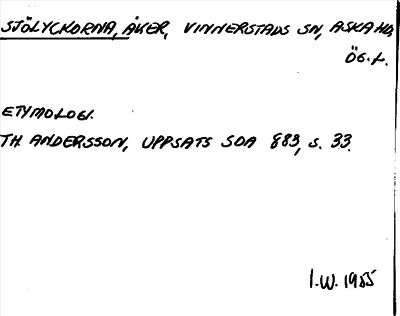 SJÖLYCKORNA, ÅKER, VINNERSTADS SN, ASKA HD,
ÖG.L.
ETYMOLOGI.
TH. ANDERSSON, UPPSATS SOA 883, S. 33.
I.W. 1985